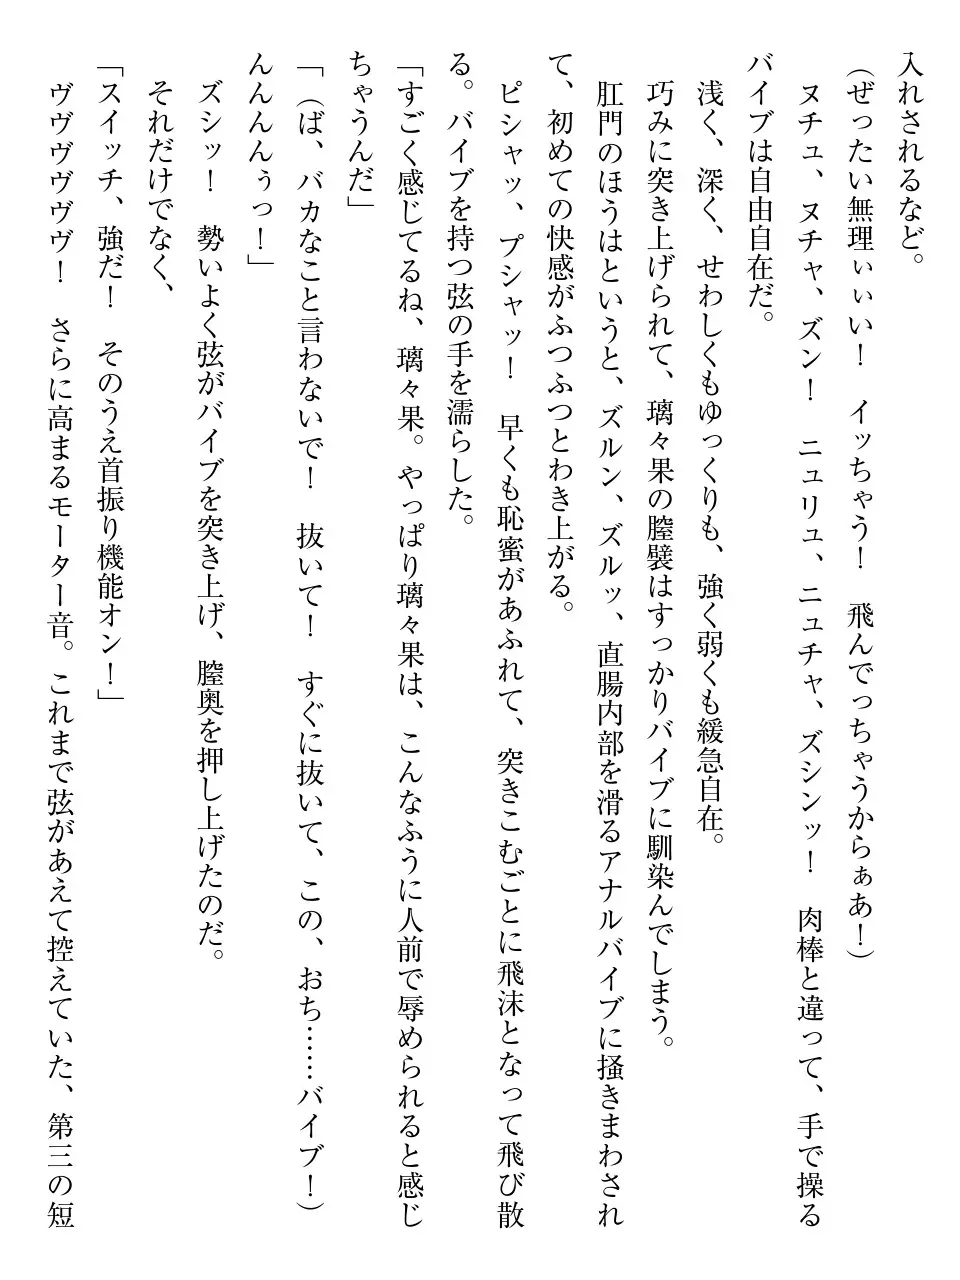 入れされるなど。
（ぜったい無理ぃぃい！　イッちゃう！　飛んでっちゃうからぁあ！）
ヌチュ、ヌチャ、ズン！　ニュリュ、ニュチャ、ズシンッ！　肉棒と違って、手で操る
バイブは自由自在だ。
浅く、深く、せわしくもゆっくりも、強く弱くも緩急自在。
巧みに突き上げられて、璃々果の膣襞はすっかりバイブに馴染んでしまう。
肛門のほうはというと、ズルン、ズルッ、直腸内部を滑るアナルバイブに掻きまわされ
て、初めての快感がふつふつとわき上がる。
ピシャッ、プシャッ！　早くも恥蜜があふれて、突きこむごとに飛沫となって飛び散
る。バイブを持つ弦の手を濡らした。
「すごく感じてるね、璃々果。やっぱり璃々果は、こんなふうに人前で辱められると感じ
ちゃうんだ」
「（ば、バカなこと言わないで！　抜いて！　すぐに抜いて、この、おち……バイブ！）
んんんんぅっ！」
ズシッ！　勢いよく弦がバイブを突き上げ、膣奥を押し上げたのだ。
それだけでなく、
「スイッチ、強だ！　そのうえ首振り機能オン！」
ヴヴヴヴヴヴ！　さらに高まるモーター音。これまで弦があえて控えていた、第三の短